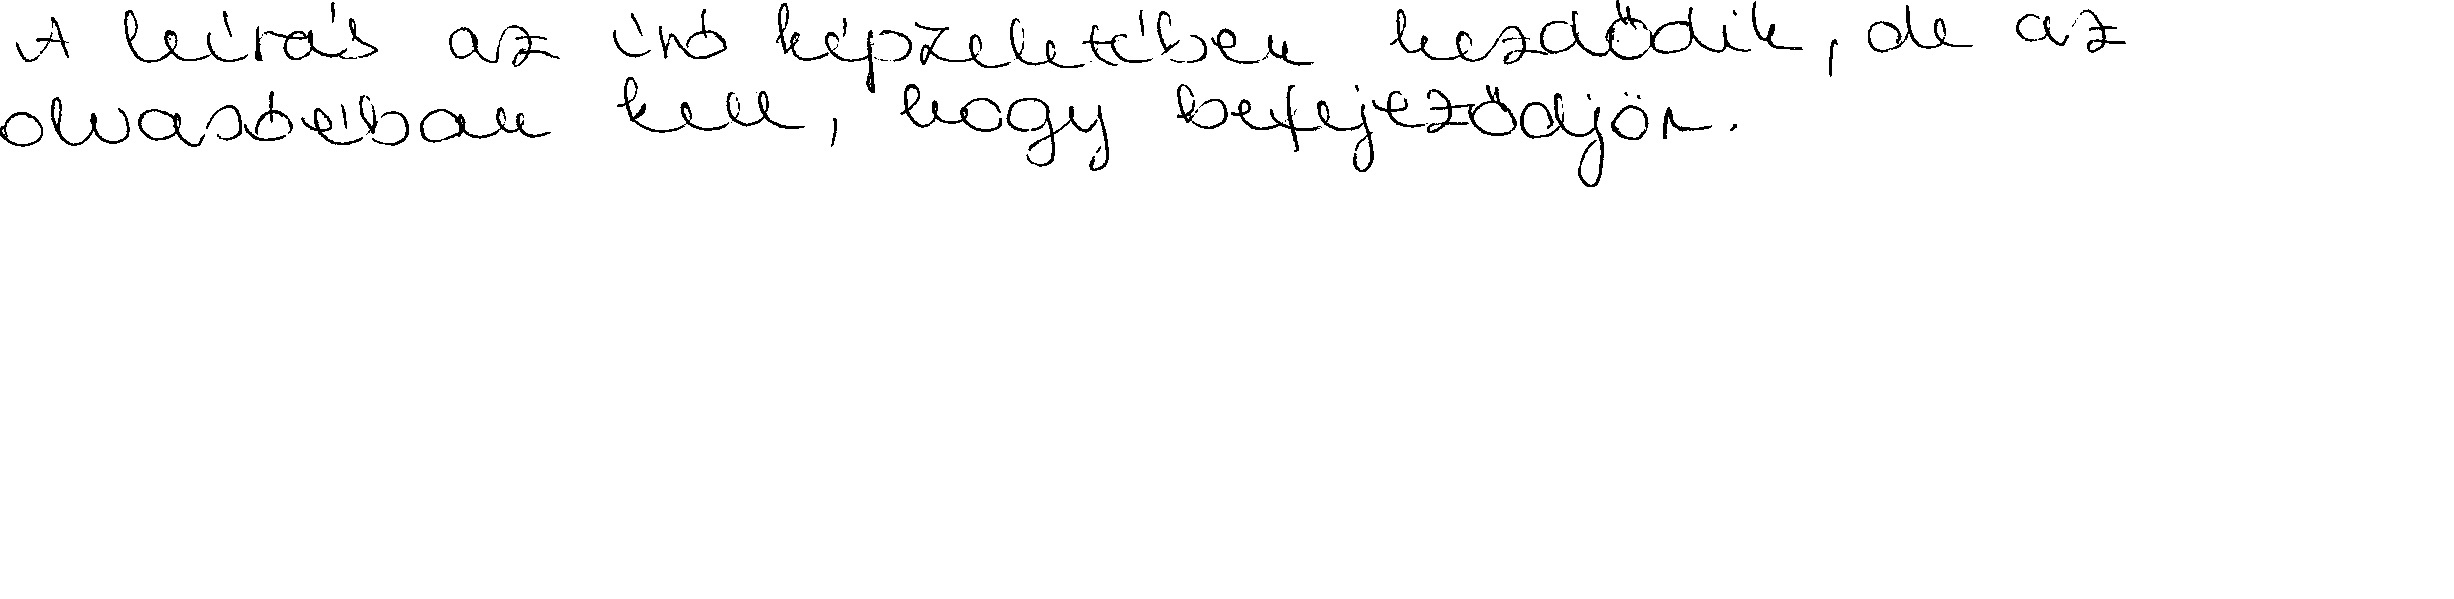 A leírás az író képzeletében kezdődik, de az
olvasóéiban kell, hogy befejeződjön.